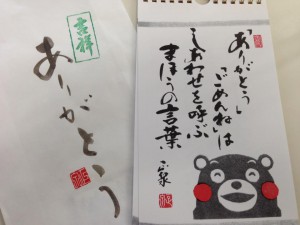 吉祥
ありがとう
「ありがとう」
「ごめんね」は
しあわせを呼ぶ
まほうの言葉